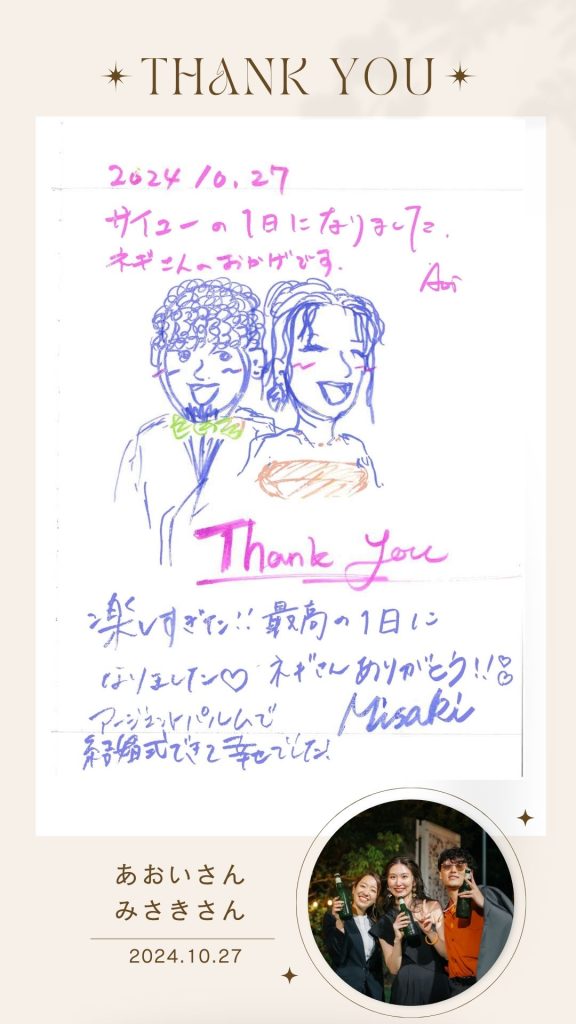 THANK YOU
2024 10.27
サイコーの1日になりました.
ネギさんのおかげです.
Aoi
Thank you
楽しすぎた!! 最高の1日に
なりました♡ ネギさんありがとう!!
Misaki
アージェントパルムで
結婚式できて幸せでした.
あおいさん
みさきさん
2024.10.27